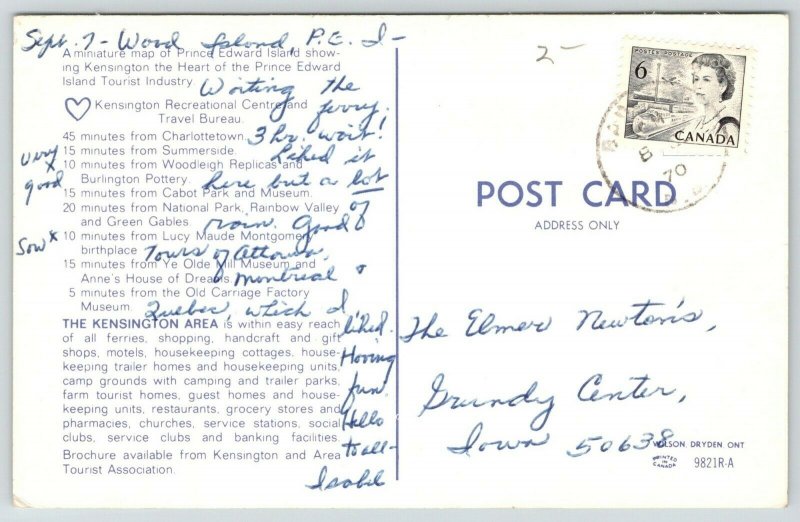 Sept. 7 - Wood Island, P.E.I -
A miniature map of Prince Edward Island show-
ing Kensington the Heart of the Prince Edward
Island Tourist Industry.
Waiting the
ferry.
Kensington Recreational Centre and
Travel Bureau.
3 hr. wait!
45 minutes from Charlottetown.
15 minutes from Summerside.
Liked it
very
good
x
10 minutes from Woodleigh Replicas and
Burlington Pottery.
here but a lot
15 minutes from Cabot Park and Museum.
20 minutes from National Park, Rainbow Valley
and Green Gables.
of
rain. Good
Saw x
10 minutes from Lucy Maude Montgomery
birthplace.
Tours of Ottawa,
15 minutes from Ye Olde Mill Museum and
Anne's House of Dreams.
Montreal &
5 minutes from the Old Carriage Factory
Museum.
Quebec, which I
liked.
THE KENSINGTON AREA is within easy reach
of all ferries, shopping, handcraft and gift
shops, motels, housekeeping cottages, house-
keeping trailer homes and housekeeping units,
camp grounds with camping and trailer parks,
farm tourist homes, guest homes and house-
keeping units, restaurants, grocery stores and
pharmacies, churches, service stations, social
clubs, service clubs and banking facilities.
Having
fun.
Hello
to all -
Isobel
Brochure available from Kensington and Area
Tourist Association.
2-
POSTES POSTAGE
6
CANADA
70
POST CARD
ADDRESS ONLY
The Elmer Newton's,
Grundy Center,
Iowa 50638
WILSON, DRYDEN, ONT
PRINTED
IN
CANADA
9821R-A